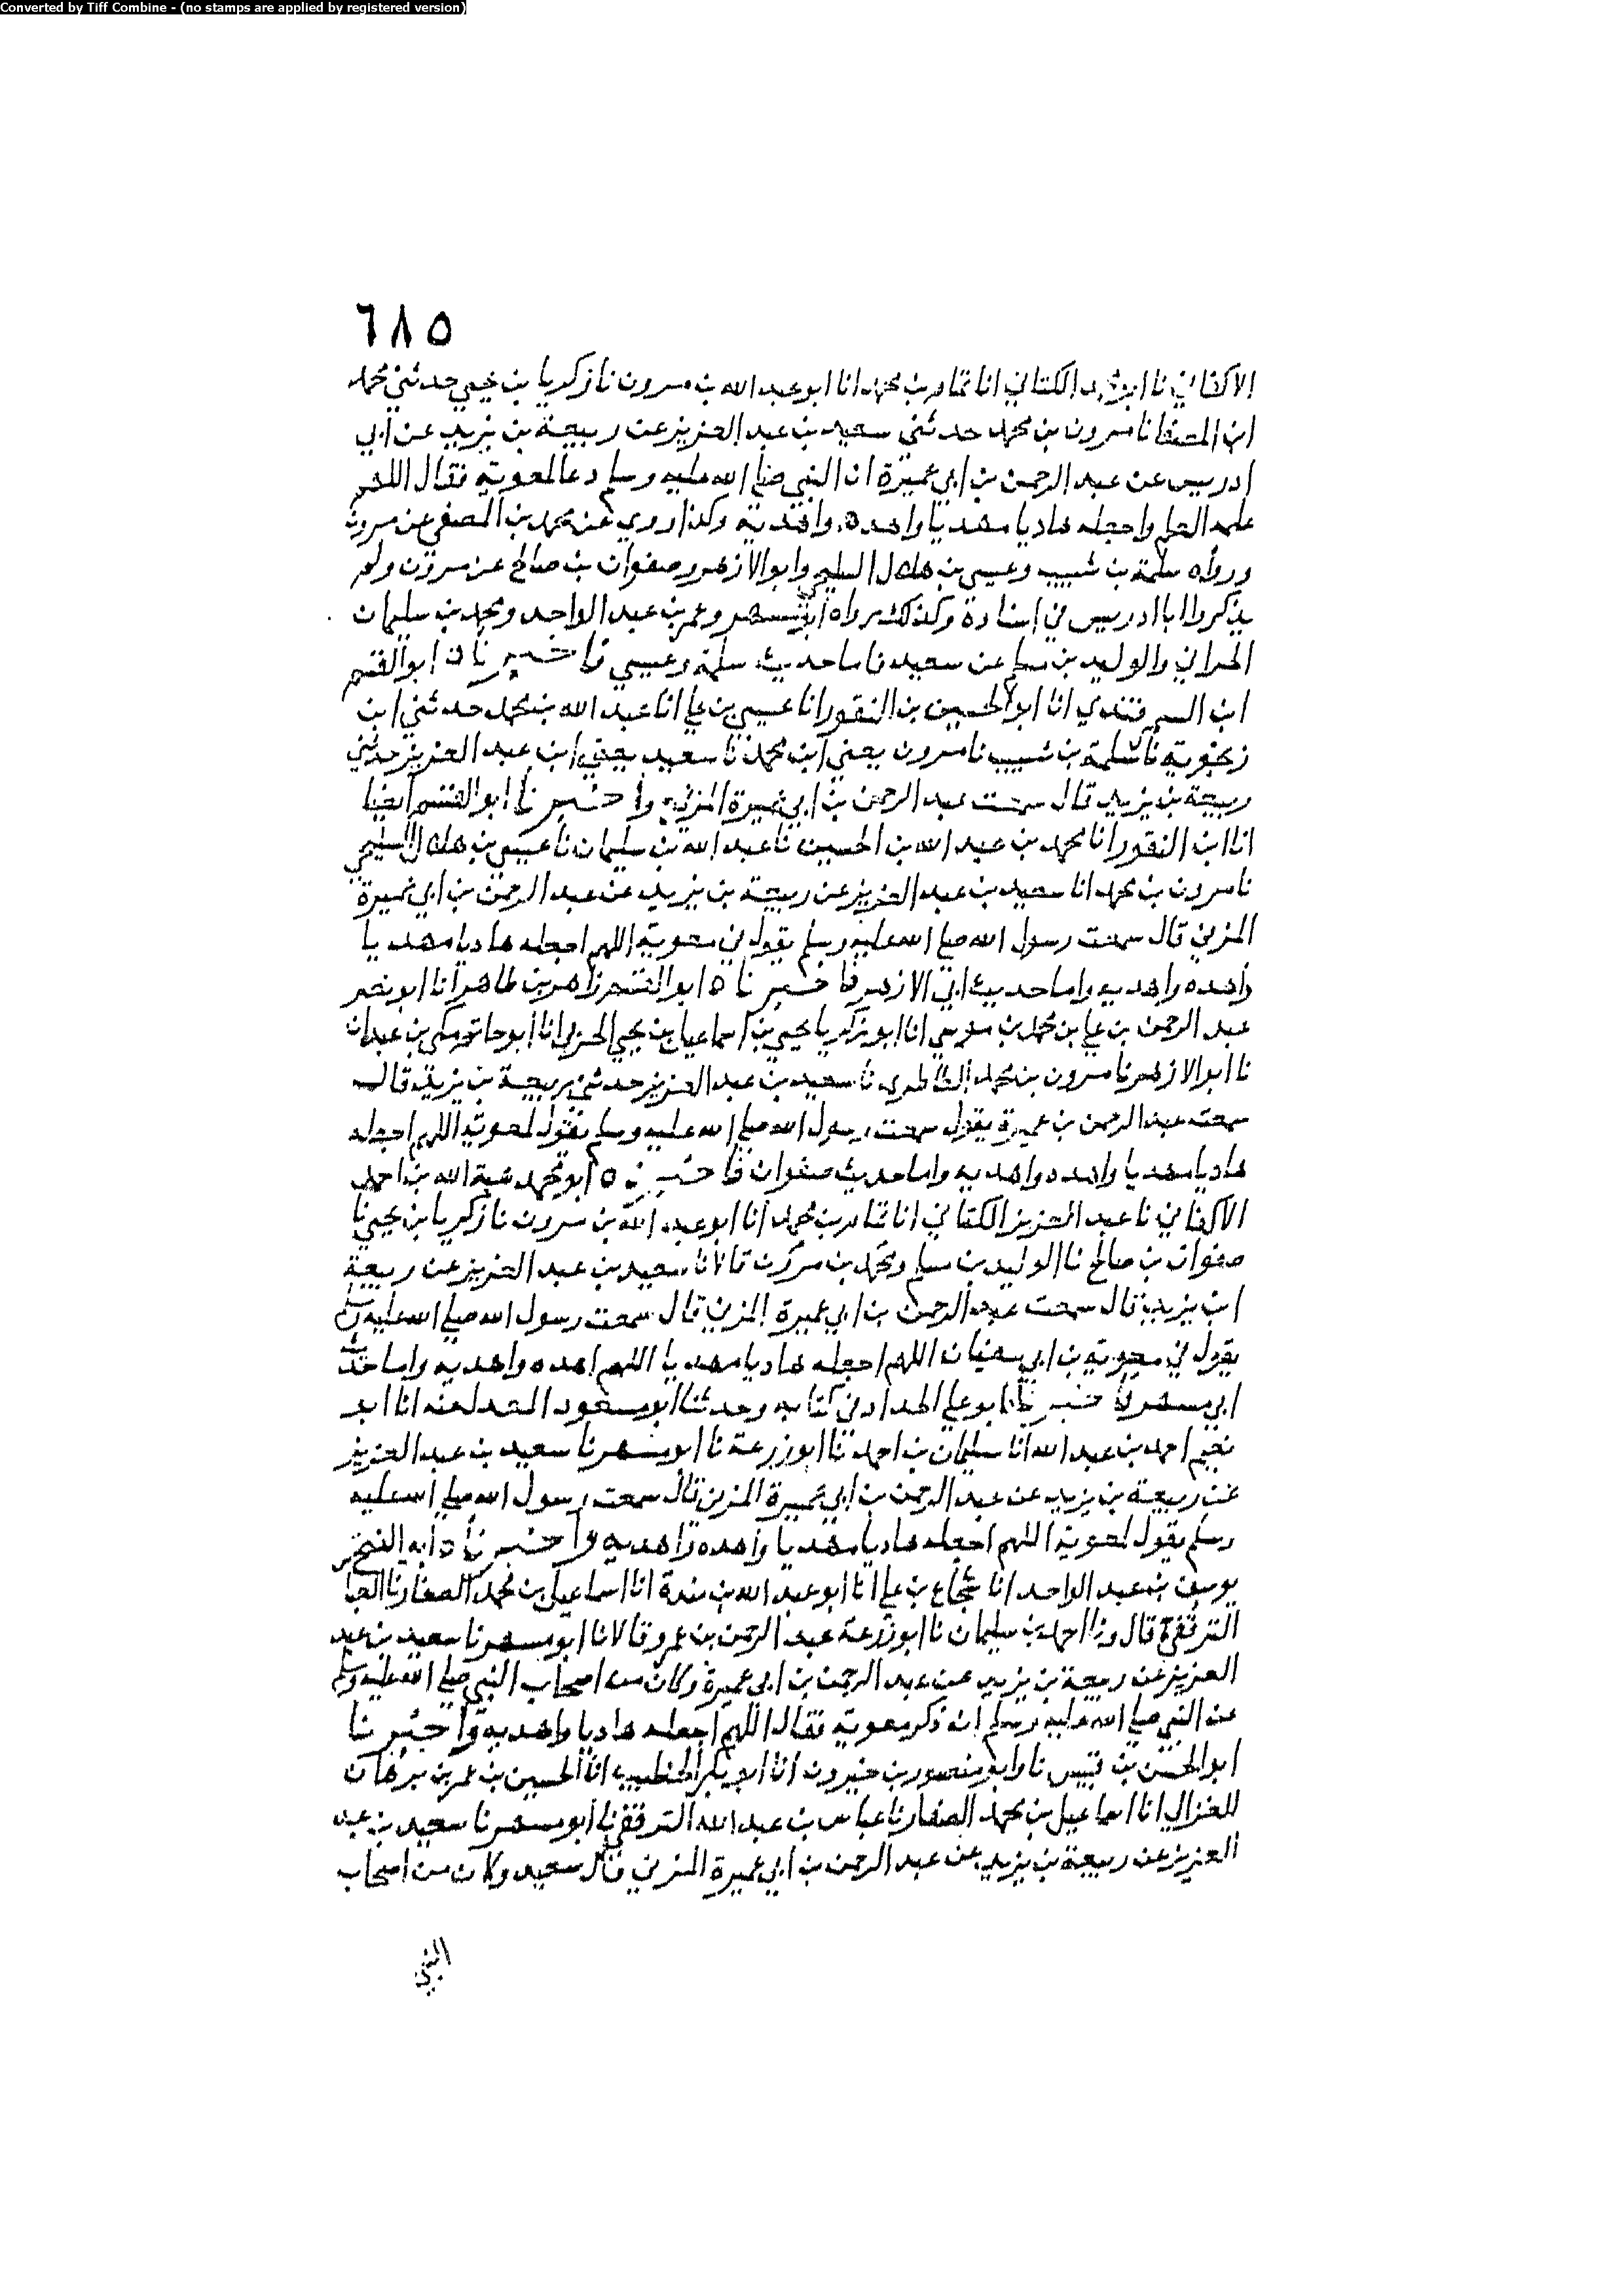 Converted by Tiff Combine - (no stamps are applied by registered version)
٦٨٥
الاكفاني نا ابو محمد الكتاني انا تمام بن محمد انا ابو عبد الله بن مرون نا زكريا بن يحيى حدثني محمد
ابن المصفا نا مرون بن محمد حدثني سعيد بن عبد العزيز عن ربيعة بن يزيد عن ابي
ادريس عن عبد الرحمن بن ابي عميرة ان النبي صلى الله عليه وسلم دعا لمعوية فقال اللهم
علمه العلم واجعله هاديا مهديا واهده واهد به وكذا روي عن محمد بن المصفى عن مرون
ورواه سلمة بن شبيب وعيسى بن هلال السليحي وابو الازهر وصفوان بن صالح عن مرون ولم
يذكروا ابا ادريس في اسناده وكذلك رواه ابو مسهر وعمر بن عبد الواحد ومحمد بن سليمان
الحراني والوليد بن مسلم عن سعيد فاما حديث سلمة وعيسى فاخبرناه ابو القسم
ابن السمرقندي انا ابو الحسين بن النقور انا عيسى بن علي انا عبد الله بن محمد حدثني ابن
زنجوية نا سلمة بن شبيب نا مرون يعني ابن محمد نا سعيد يعني ابن عبد العزيز حدثني
ربيعة بن يزيد قال سمعت عبد الرحمن بن ابي عميرة المزني واخبرنا ابو القسم ايضا
انا ابن النقور انا محمد بن عبد الله بن الحسين نا عبد الله بن سليمان نا عيسى بن هلال السليحي
نا مرون بن محمد انا سعيد بن عبد العزيز عن ربيعة بن يزيد عن عبد الرحمن بن ابي عميرة
المزني قال سمعت رسول الله صلى الله عليه وسلم يقول في معوية اللهم اجعله هاديا مهديا
واهده واهد به واما حديث ابي الازهر فاخبرناه ابو القسم زاهر بن طاهر انا ابو نصر
عبد الرحمن بن علي بن محمد بن موسى انا ابو زكريا يحيى بن اسماعيل بن يحيى الحربي انا ابو حاتم مكي بن عبدان
نا ابو الازهر نا مرون بن محمد الطاطري نا سعيد بن عبد العزيز حدثني ربيعة بن يزيد قال
سمعت عبد الرحمن بن عميرة يقول سمعت رسول الله صلى الله عليه وسلم يقول لمعوية اللهم اجعله
هاديا مهديا واهده واهد به واما حديث صفوان فاخبرناه ابو محمد هبة الله بن احمد
الاكفاني نا عبد العزيز الكتاني انا تمام بن محمد انا ابو عبد الله بن مرون نا زكريا بن يحيى نا
صفوان بن صالح نا الوليد بن مسلم ومحمد بن مرون قالا نا سعيد بن عبد العزيز عن ربيعة
ابن يزيد قال سمعت عبد الرحمن بن ابي عميرة المزني قال سمعت رسول الله صلى الله عليه وسلم
يقول في معوية بن ابي سفيان اللهم اجعله هاديا مهديا اللهم اهده واهد به واما حديث
ابي مسهر فاخبرنا ابو علي الحداد في كتابه وحدثنا ابو مسعود المعدل عنه انا ابو
نعيم احمد بن عبد الله انا سليمان بن احمد نا ابو زرعة نا ابو مسهر نا سعيد بن عبد العزيز
عن ربيعة بن يزيد عن عبد الرحمن بن ابي عميرة المزني قال سمعت رسول الله صلى الله عليه
وسلم يقول لمعوية اللهم اجعله هاديا مهديا واهده واهد به واخبرناه ابو الفتح
يوسف بن عبد الواحد انا شجاع بن علي انا ابو عبد الله بن مندة انا اسماعيل بن محمد الصفار نا العبا
الترقفي قال ونا احمد بن سليمان نا ابو زرعة عبد الرحمن بن عمرو قالا نا ابو مسهر نا سعيد بن عبد
العزيز عن ربيعة بن يزيد عن عبد الرحمن بن ابي عميرة وكان من اصحاب النبي صلى الله عليه وسلم
عن النبي صلى الله عليه وسلم انه ذكر معوية فقال اللهم اجعله هاديا واهد به واخبرنا
ابو الحسن بن قبيس نا وابو منصور بن خيرون انا ابو بكر الخطيب انا الحسين بن عمر بن برهان
الغزال انا اسماعيل بن محمد الصفار نا عباس بن عبد الله الترقفي نا ابو مسهر نا سعيد بن عبد
العزيز عن ربيعة بن يزيد عن عبد الرحمن بن ابي عميرة المزني قال سعيد وكان من اصحاب
النبي